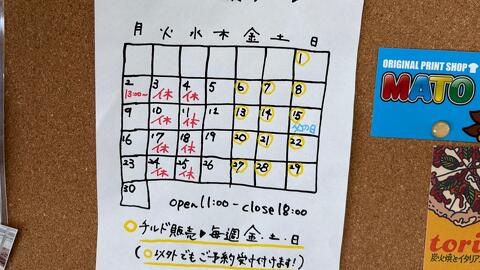 月 火 水 木 金 土 日
1
2 3 4 5 6 7 8
13:00~ 休 休
9 10 11 12 13 14 15
休 休
16 17 18 19 20 21 22
休 休
23 24 25 26 27 28 29
休 休
30
open 11:00 - close 18:00
チルド販売▶毎週金・土・日
(○以外でもご予約受け付けます!)
ORIGINAL PRINT SHOP
MATO
tori
炭火焼とイタリア